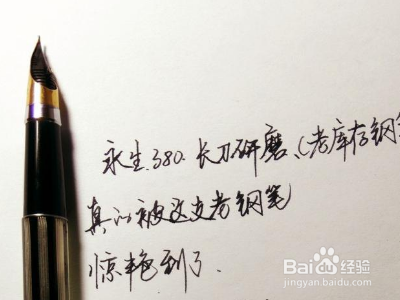 永生.380.长刀研磨、(老库存钢笔
真的被这支老钢笔
惊艳到了.
Baidu经验
jingyan.baidu.com